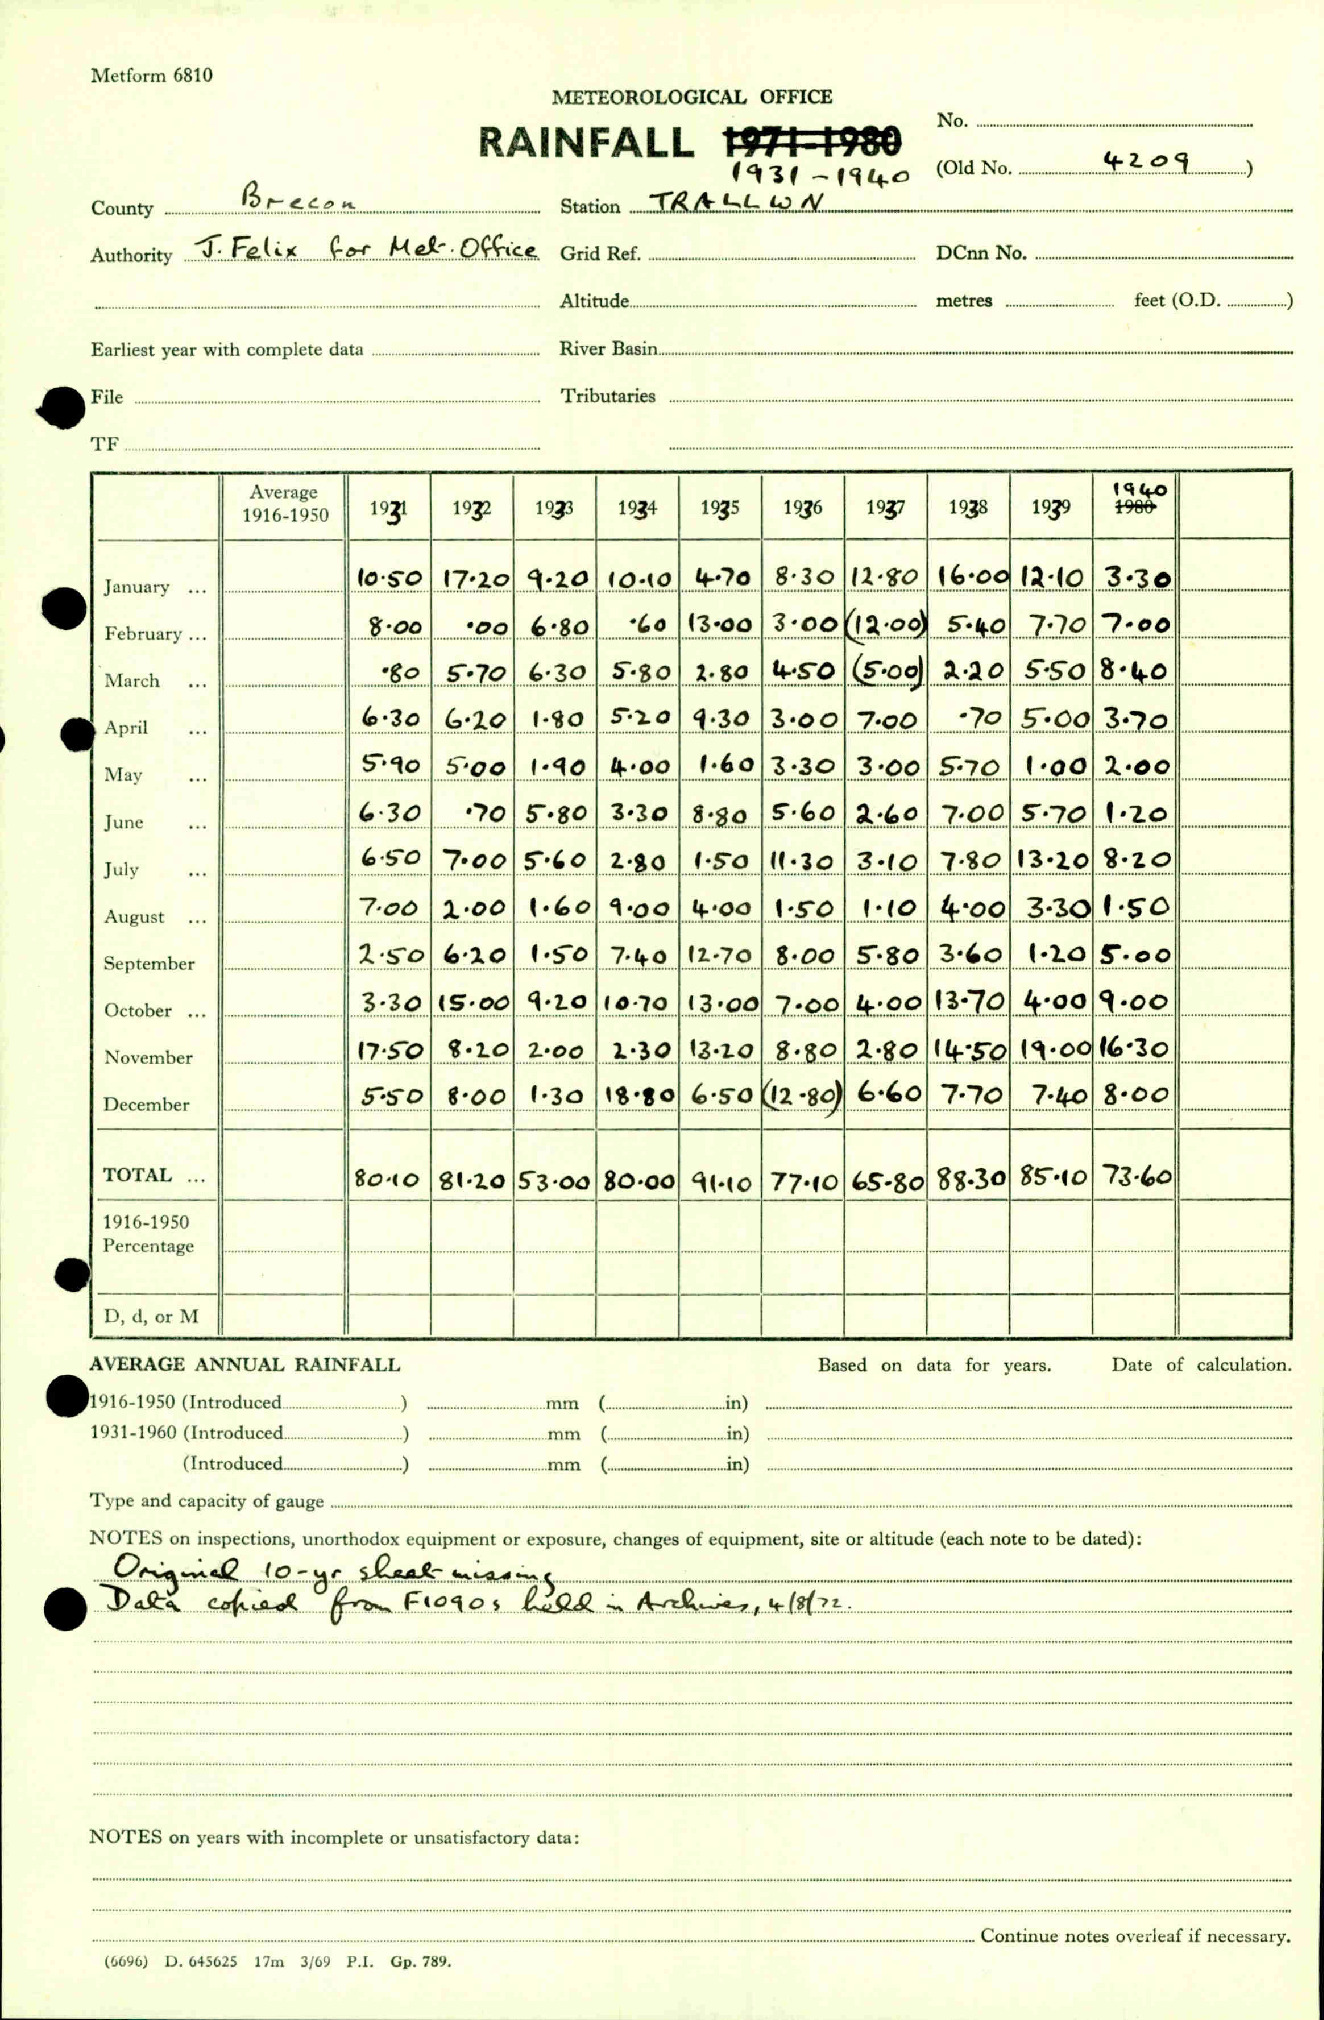 Metform 6810
METEOROLOGICAL OFFICE
RAINFALL 1971-1980
1931-1940
No.
(Old No. 4209)
County Brecon Station TRALLWN
Authority J. Felix for Met. Office Grid Ref. DCnn No.
Altitude metres feet (O.D. )
Earliest year with complete data River Basin
File Tributaries
TF
Average 1916-1950 1931 1932 1933 1934 1935 1936 1937 1938 1939 1940 1980
January ... 10.50 17.20 9.20 10.10 4.70 8.30 12.80 16.00 12.10 3.30
February ... 8.00 .00 6.80 .60 13.00 3.00 (12.00) 5.40 7.70 7.00
March ... .80 5.70 6.30 5.80 2.80 4.50 (5.00) 2.20 5.50 8.40
April ... 6.30 6.20 1.80 5.20 9.30 3.00 7.00 .70 5.00 3.70
May ... 5.90 5.00 1.90 4.00 1.60 3.30 3.00 5.70 1.00 2.00
June ... 6.30 .70 5.80 3.30 8.80 5.60 2.60 7.00 5.70 1.20
July ... 6.50 7.00 5.60 2.80 1.50 11.30 3.10 7.80 13.20 8.20
August ... 7.00 2.00 1.60 9.00 4.00 1.50 1.10 4.00 3.30 1.50
September 2.50 6.20 1.50 7.40 12.70 8.00 5.80 3.60 1.20 5.00
October ... 3.30 15.00 9.20 10.70 13.00 7.00 4.00 13.70 4.00 9.00
November 17.50 8.20 2.00 2.30 13.20 8.80 2.80 14.50 19.00 16.30
December 5.50 8.00 1.30 18.80 6.50 (12.80) 6.60 7.70 7.40 8.00
TOTAL ... 80.10 81.20 53.00 80.00 91.10 77.10 65.80 88.30 85.10 73.60
1916-1950
Percentage
D, d, or M
AVERAGE ANNUAL RAINFALL Based on data for years. Date of calculation.
1916-1950 (Introduced ) mm ( in)
1931-1960 (Introduced ) mm ( in)
(Introduced ) mm ( in)
Type and capacity of gauge
NOTES on inspections, unorthodox equipment or exposure, changes of equipment, site or altitude (each note to be dated):
Original 10-yr sheet missing
Data copied from F1090s held in Archives, 4/8/72.
NOTES on years with incomplete or unsatisfactory data:
Continue notes overleaf if necessary.
(6696) D. 645625 17m 3/69 P.I. Gp. 789.